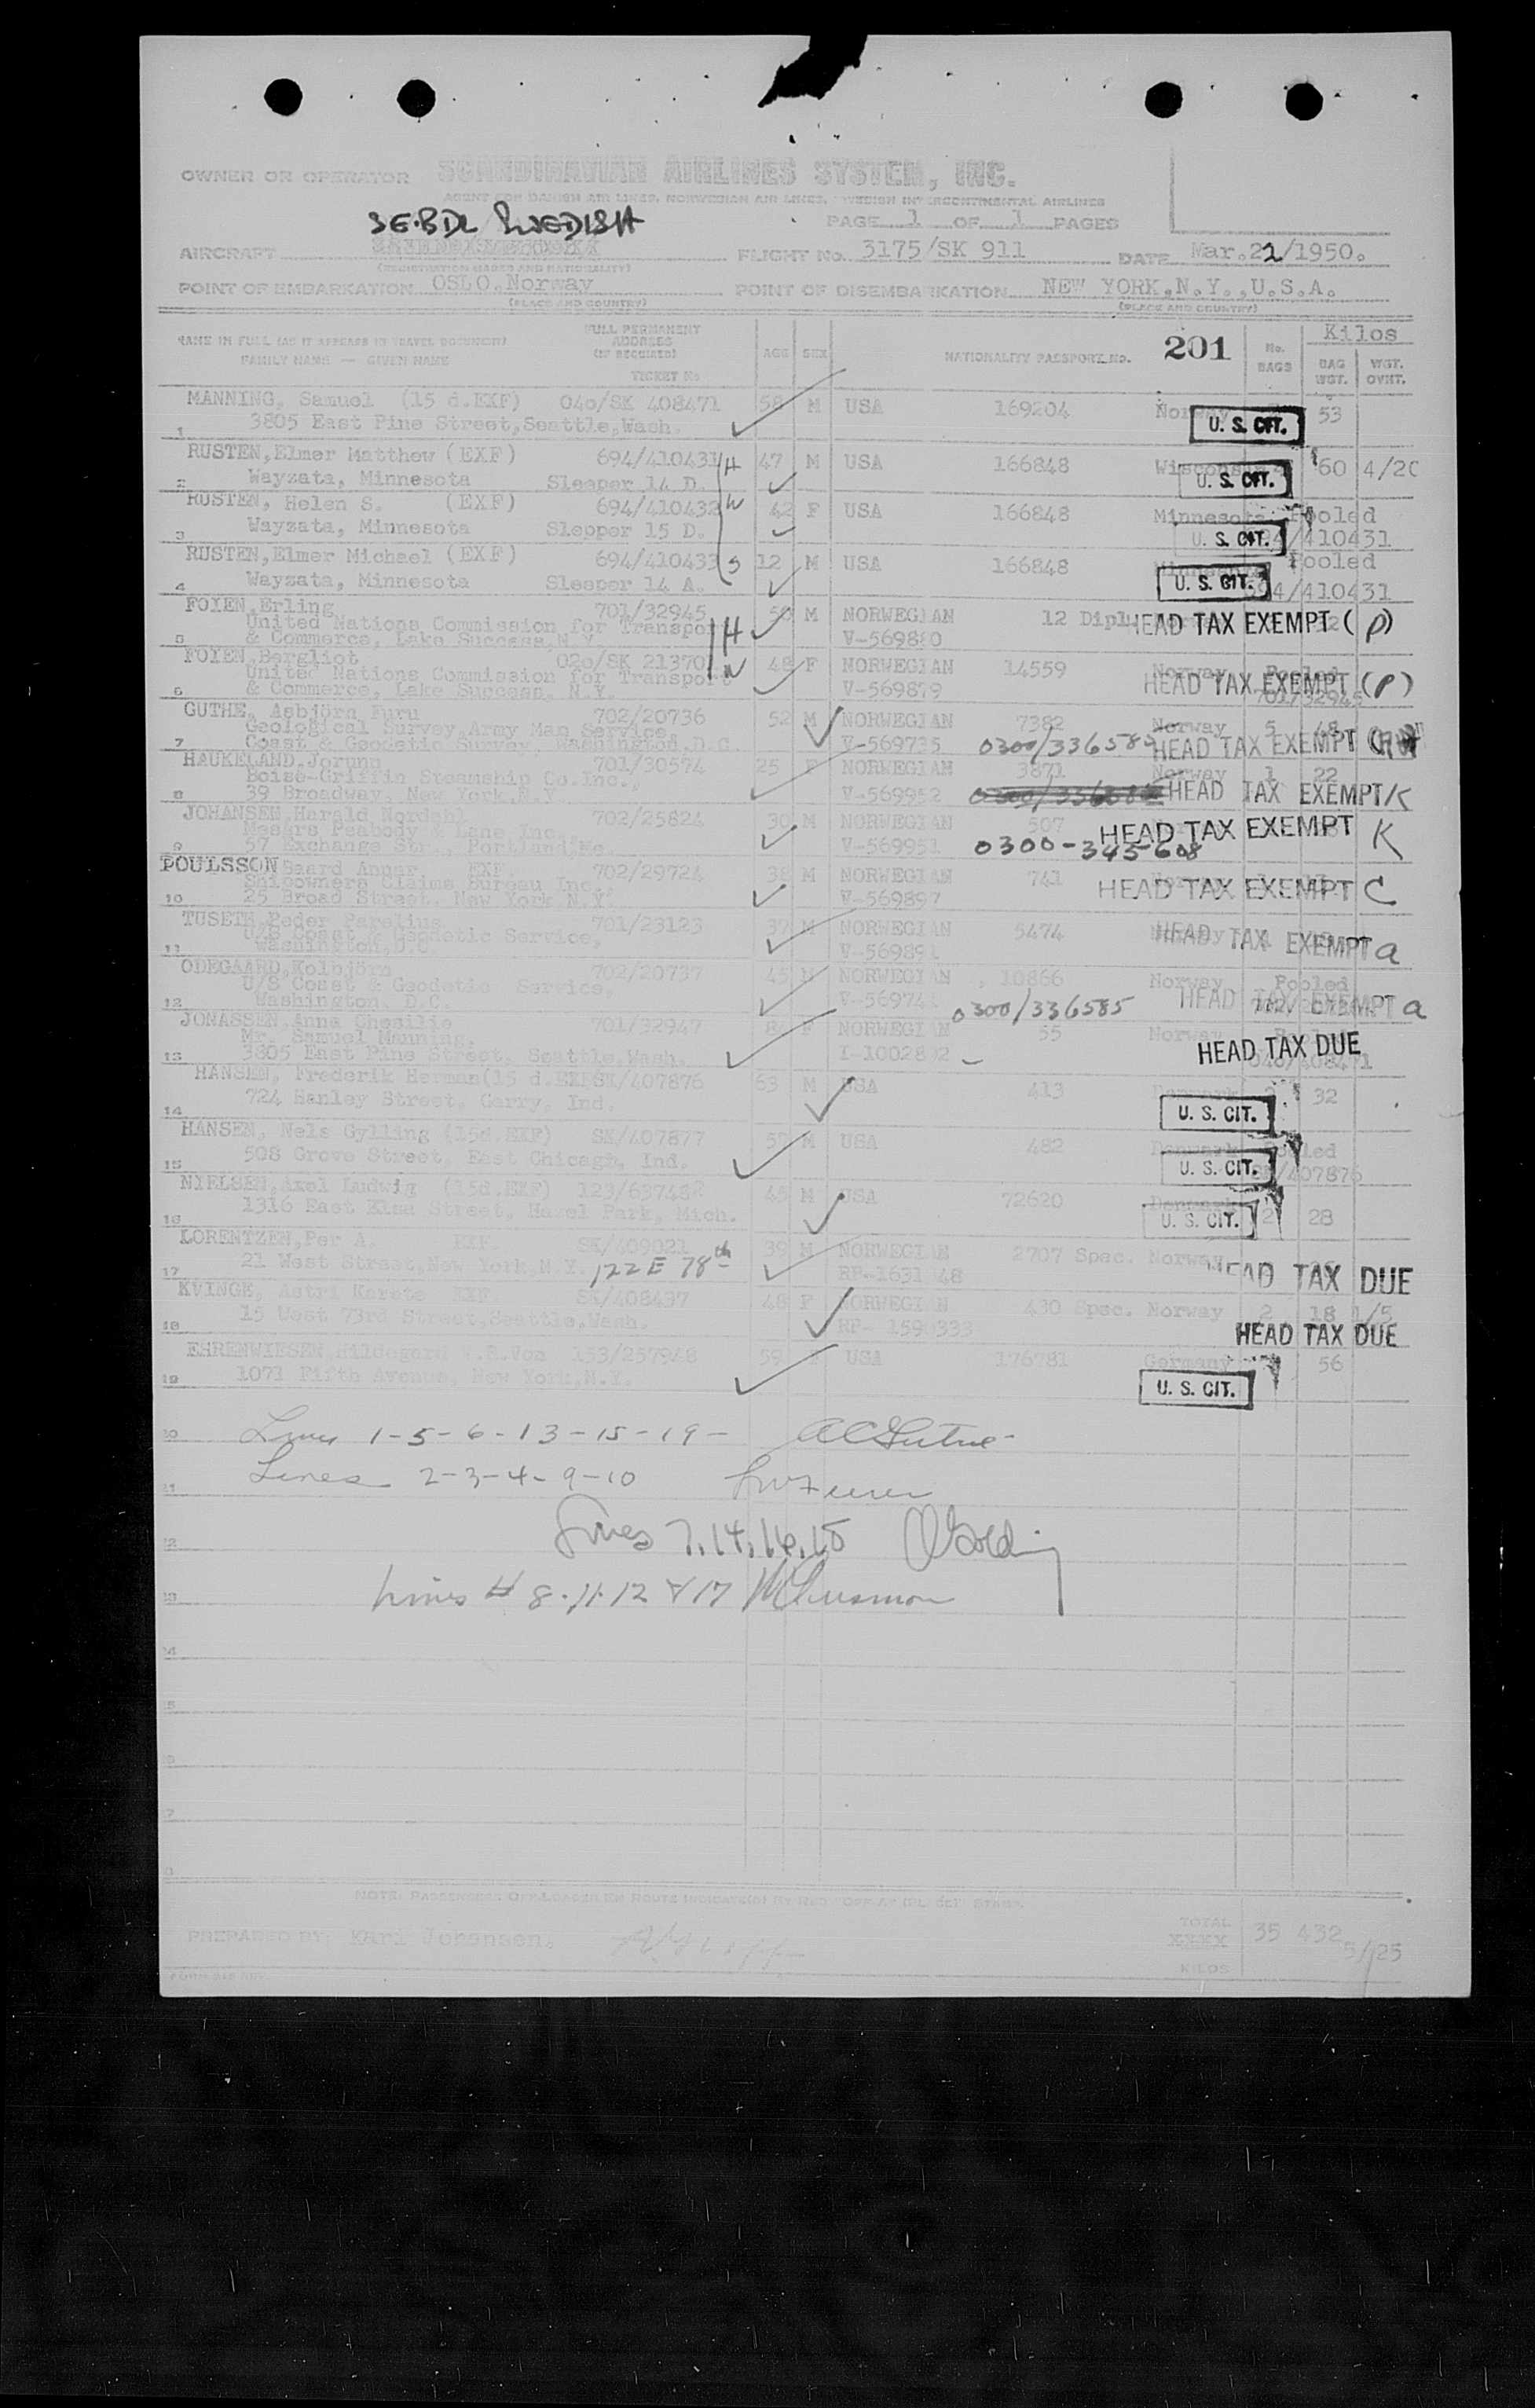 OWNER OR OPERATOR SCANDINAVIAN AIRLINES SYSTEM, INC.
AGENT FOR DANISH AIR LINES, NORWEGIAN AIR LINES, SWEDISH INTERCONTINENTAL AIRLINES
SE-BDL SWEDISH
PAGE 1 OF 1 PAGES
AIRCRAFT FLIGHT No. 3175/SK 911 DATE Mar.22/1950.
(REGISTRATION MARKS AND NATIONALITY)
POINT OF EMBARKATION OSLO.Norway POINT OF DISEMBARKATION NEW YORK,N.Y.,U.S.A.
(PLACE AND COUNTRY) (PLACE AND COUNTRY)
NAME IN FULL (AS IT APPEARS IN TRAVEL DOCUMENT) FULL PERMANENT ADDRESS (IF REQUIRED) AGE SEX NATIONALITY PASSPORT No. 201 No. BAGS Kilos
FAMILY NAME — GIVEN NAME TICKET No BAG WGT. WGT. OVHT.
MANNING, Samuel (15 d.EXF) 040/SK 408471 58 M USA 169204 Norway 53
1 3805 East Pine Street,Seattle,Wash. U. S. CIT.
RUSTEN,Elmer Matthew (EXF) 694/410431 H 47 M USA 166848 Wisconsin 60 4/20
2 Wayzata, Minnesota Sleeper 14 D. U. S. CIT.
RUSTEN, Helen S. (EXF) 694/410432 W 42 F USA 166848 Minnesota Pooled
3 Wayzata, Minnesota Sleeper 15 D. U. S. CIT. 694/410431
RUSTEN,Elmer Michael (EXF) 694/410433 S 12 M USA 166848 Minnesota Pooled
4 Wayzata, Minnesota Sleeper 14 A. U. S. CIT. 694/410431
FOYEN,Erling 701/32945 50 M NORWEGIAN 12 Dipl.
United Nations Commission for Transport H HEAD TAX EXEMPT (P)
5 & Commerce, Lake Success, N.Y. V-569880
FOYEN,Bergliot 020/SK 21370 W 48 F NORWEGIAN 14559 Norway Pooled
United Nations Commission for Transport HEAD TAX EXEMPT (P)
6 & Commerce, Lake Success, N.Y. V-569879 701/32945
GUTHE, Asbjörn Furu 702/20736 52 M NORWEGIAN 7382 Norway 5 48
Geological Survey,Army Map Service,
7 Coast & Geodetic Survey, Washington,D.C. V-569735 0300/336585 HEAD TAX EXEMPT
HAUKELAND,Jorunn 701/30574 25 F NORWEGIAN 3871 Norway 1 22
Boise-Griffin Steamship Co.Inc.,
8 39 Broadway, New York,N.Y. V-569952 HEAD TAX EXEMPT K
JOHANSEN,Harald Nordahl 702/25824 30 M NORWEGIAN 507
Messrs Peabody & Lane Inc., HEAD TAX EXEMPT K
9 57 Exchange Str., Portland,Me. V-569951 0300-345608
POULSSON Baard Annar. EXF 702/29724 38 M NORWEGIAN 741
Shipowners Claims Bureau Inc., HEAD TAX EXEMPT C
10 25 Broad Street, New York N.Y. V-569897
TUSETH,Peder Parelius 701/23123 37 M NORWEGIAN 5474 Norway
U/S Coast & Geodetic Service, HEAD TAX EXEMPT a
11 Washington,D.C. V-56989
ODEGAARD,Kolbjörn 702/20737 45 M NORWEGIAN 10866 Norway Pooled
U/S Coast & Geodetic Service, HEAD TAX EXEMPT a
12 Washington, D.C. V-56974 0300/336585 702/20736
JONASSEN,Anna 701/32947 F NORWEGIAN 55 Norway
Mr. Samuel Manning, HEAD TAX DUE
13 3805 East Pine Street, Seattle,Wash. I-1002892 040/408471
HANSEN, Frederik Herman(15 d.EXF SK/407876 63 M USA 413 Denmark 2 32
14 724 Hanley Street, Garry, Ind. U. S. CIT.
HANSEN, Nels Gylling (15d.EXF) SK/407877 M USA 482 Denmark Pooled
15 508 Grove Street, East Chicago, Ind. U. S. CIT. SK/407876
NIELSEN,Axel Ludwig (15d.EXF) 123/637482 45 M USA 72620 Denmark
16 1316 East Elsa Street, Hazel Park, Mich. U. S. CIT. 2 28
LORENTZEN,Per A. EXF. SK/409021 39 M NORWEGIAN 2707 Spec. Norway
17 21 West Street,New York,N.Y. 122 E 78th RP-1631 48 HEAD TAX DUE
KVINGE, Astri Karete EXF. SK/408437 48 F NORWEGIAN 430 Spec. Norway 2 18 1/5
18 15 West 73rd Street,Seattle,Wash. RP- 1590333 HEAD TAX DUE
EHRENWIESEN,Hildegard V.R.Von 153/257948 59 F USA 176781 Germany 56
19 1071 Fifth Avenue, New York,N.Y. U. S. CIT.
20 Lines 1-5-6-13-15-19-
21 Lines 2-3-4-9-10
22 Lines 7.14.16.18
23 Lines # 8.11.12 & 17
24
25
26
27
28
NOTE: PASSENGERS OFF-LOADED EN ROUTE INDICATE(D) BY RED "OFF AT (PL. OF)" STAMP.
PREPARED BY: Karl Johansen. TOTAL KILOS 35 432 5/25